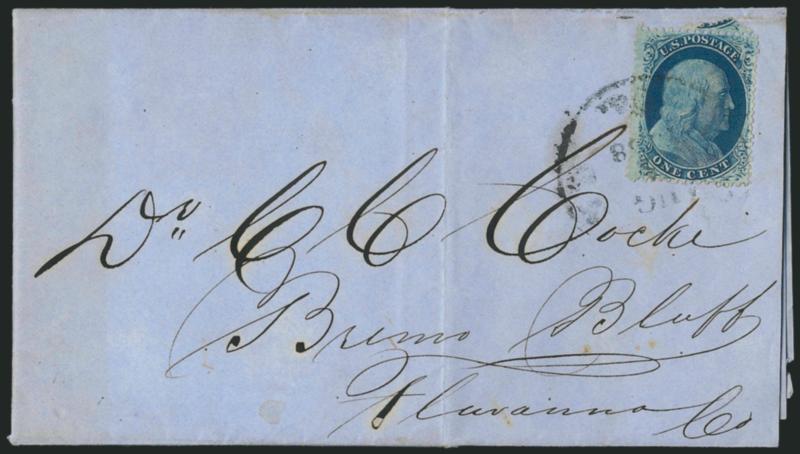 U.S. POSTAGE
ONE CENT
Dr C C Cocke
Bremo Bluff
Fluvanna Co